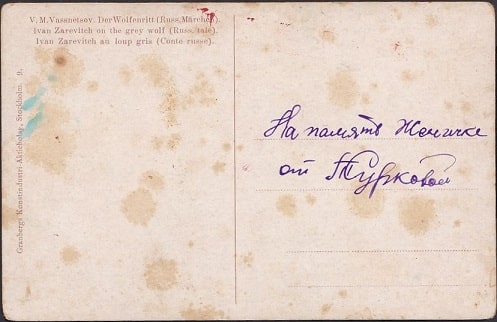 V. M. Vassnetsov. Der Wolfenritt (Russ. Märchen).
Ivan Zarevitch on the grey wolf (Russ. tale).
Ivan Zarevitch au loup gris (Conte russe).
Granbergs Konstindustri Aktiebolag, Stockholm 9.
На память Женичке
от Турковой